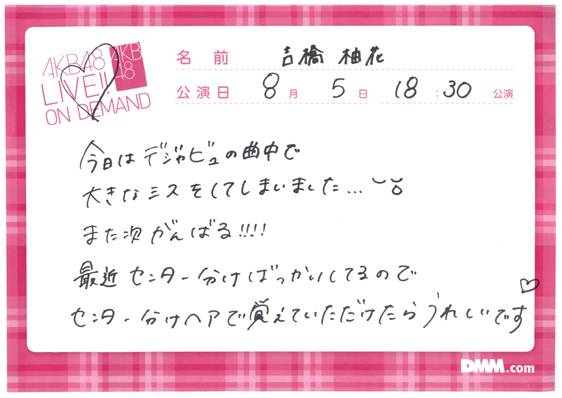 AKB48
LIVE!!
ON DEMAND
AKB
48
名 前 吉橋 柚花
公演日 8月 5日 18:30 公演
今日はデジャビュの曲中で
大きなミスをしてしまいました...
また次がんばる!!!!
最近センター分けばっかりしてるので
センター分けヘアで覚えていただけたらうれしいです♡
DMM.com